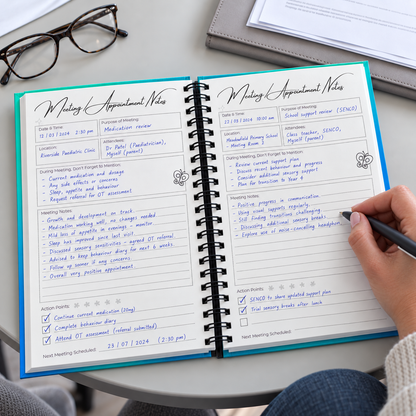 Meeting / Appointment Notes
Date & Time
12 / 03 / 2024 2:30 pm
Purpose of Meeting
Medication review
Location
Riverside Paediatric Clinic
Attendees
Dr Patel (Paediatrician),
Myself (parent)
During Meeting, Don't Forget to Mention
- Current medication and dosage
- Any side effects or concerns
- Sleep, appetite and behaviour
- Request referral for OT assessment
Meeting Notes
- Growth and development on track
- Medication working well, no changes needed
- Mild loss of appetite in evenings - monitor
- Sleep has improved since last visit
- Discussed sensory sensitivities - agreed OT referral
- Advised to keep behaviour diary for next 6 weeks
- Follow up sooner if any concerns
- Overall very positive appointment
Action Points
Continue current medication
Complete behaviour diary
Attend OT assessment (referral submitted)
Next Meeting Scheduled:
(2:30 pm)
Meeting / Appointment Notes
Date & Time
10:00 am
Purpose of Meeting
School support review (SENCO)
Location
Primary School
Meeting Room
Attendees
Class teacher, SENCO,
Myself (parent)
During Meeting, Don't Forget to Mention
- Review current support plan
- Discuss recent behaviour and progress
- Consider additional sensory support
- Plan for transition to Year 4
Meeting Notes
- Positive progress in communication
- Using visual supports regularly
- Still finding transitions challenging
- Discussing additional sensory breaks
- Explore use of noise-cancelling headphones
Action Points
SENCO to share updated support plan
Trial sensory breaks after lunch
Next Meeting Scheduled: